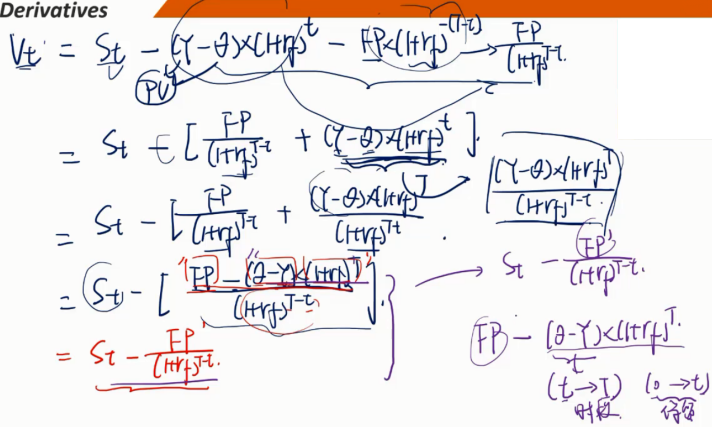 Derivatives
Vt = St - (γ-θ)×(1+rf)^t - FP×(1+rf)^-(T-t) → FP/(1+rf)^T-t
PV
= St - [FP/(1+rf)^T-t + (γ-θ)×(1+rf)^t].
= St - [FP/(1+rf)^T-t + (γ-θ)×(1+rf)^T/(1+rf)^T-t.
(γ-θ)×(1+rf)^T/(1+rf)^T-t
= St - [FP-(θ-γ)×(1+rf)^T/(1+rf)^T-t].
→ St - FP'/(1+rf)^T-t.
= St - FP'/(1+rf)^T-t.
FP - (θ-γ)×(1+rf)^T.
t
(t→T) (0→t)
时段